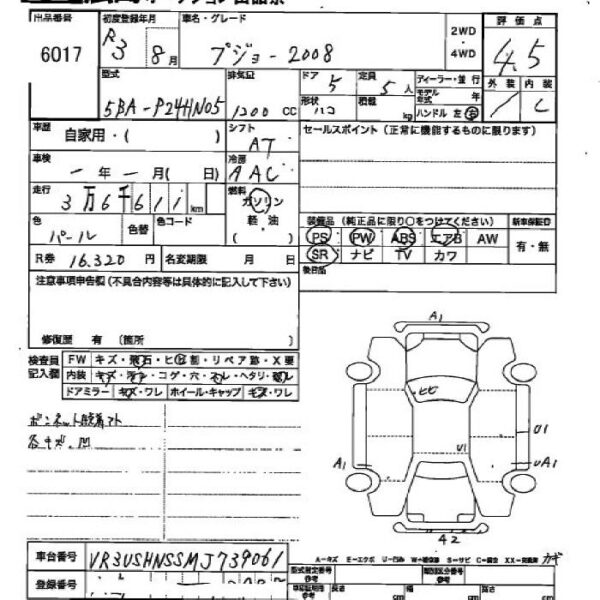 出品番号 初度登録年月 車名・グレード 2WD 4WD 評価点
6017 R3 8月 プジョー 2008 4.5
型式 排気量 ドア 定員 ディーラー・並行 外装 内装
5BA-P24HN05 1200 CC 5 5人 モデル年式 年 C
形状 ハコ 積載 kg ハンドル 左 右
車歴 自家用・( ) シフト AT セールスポイント(正常に機能するものに限ります)
車検 年 月( 日) 冷房 AAC
走行 3万6千611km 燃料 ガソリン 軽油 ( )
色 パール 色替 色コード
装備品(純正品に限り○をつけてください) 新車保証書
PS PW ABS エアB AW 有・無
SR ナビ TV カワ
R券 16.320円 名変期限 月 日 後日品
注意事項申告欄(不具合内容等は具体的に記入ください)
修復歴 有 (箇所 )
検査員記入欄 FW キズ・飛石・ヒビ割・リペア跡・X要
内装 キズ・汚レ・コゲ・穴・スレ・ヘタリ・
ドアミラー キズ・ワレ ホイール・キャップ キズ・ワレ
ボンネット
各キズ、凹
A1
ヒビ
U1 U1
A1 UA1
A2
A-キズ E-エクボ U-凹み W-補修跡 S-サビ C-腐食 XX-交換済 カギ
車台番号 VR3USHNSSMJ739061
型式指定番号 参考 類別区分番号 参考
登録番号
車両証明書 参考 長さ cm 幅 cm 高さ cm